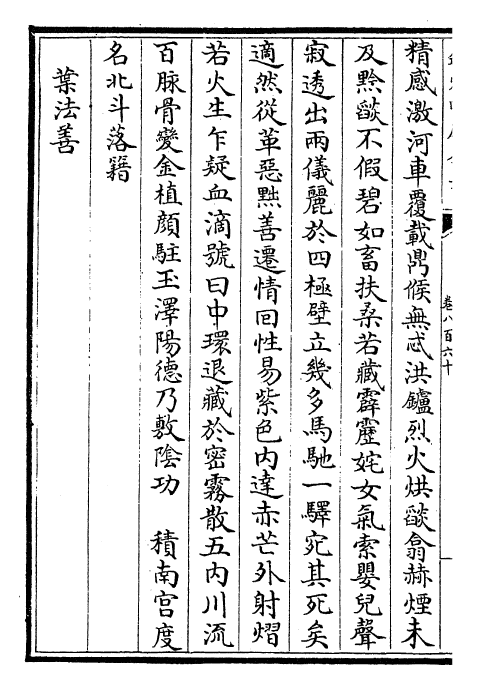 卷八百六十
精感激河車覆載鼎候無忒洪鑪烈火烘燄翕赫煙未
及黔燄不假碧如畜扶桑若藏霹靂姹女氣索嬰兒聲
寂透出兩儀麗於四極壁立幾多馬馳一驛宛其死矣
適然從革惡黜善遷情回性易紫色内達赤芒外射熠
若火生乍疑血滴號曰中環退藏於密霧散五内川流
百脉骨變金植顔駐玉澤陽德乃敷陰功　積南宫度
名北斗落籍
葉法善